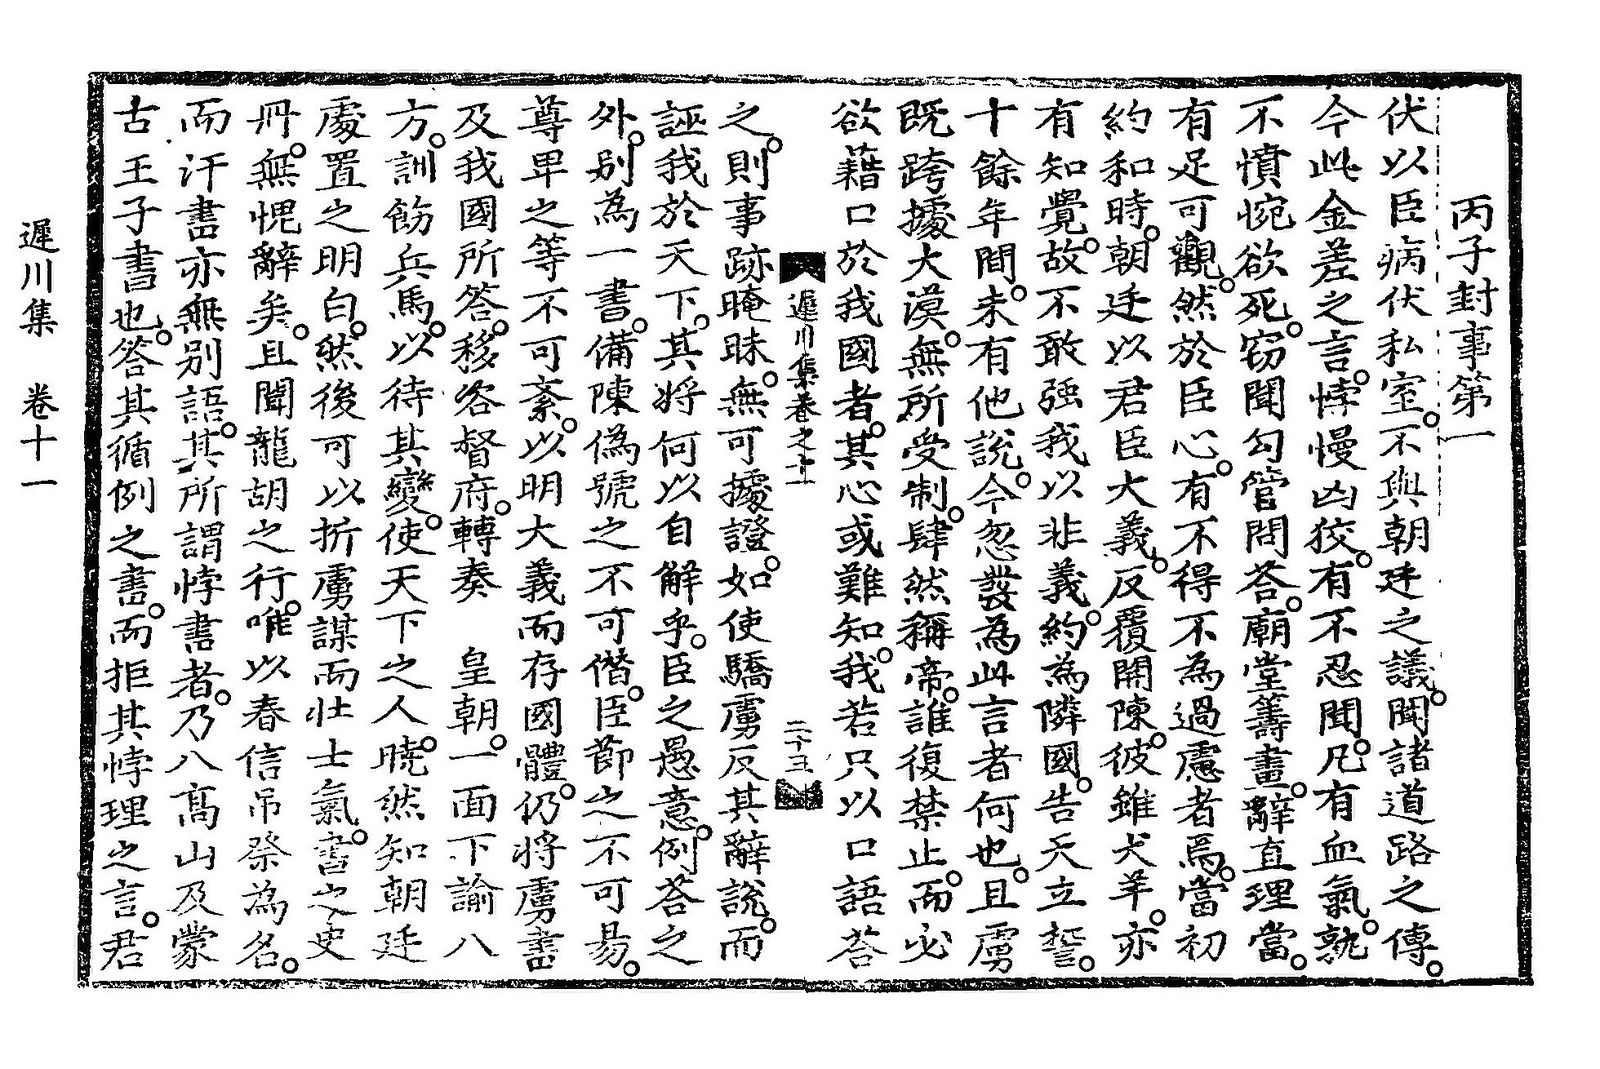 丙子封事第一
伏以臣病伏私室。不與朝廷之議。聞諸道路之傳。
今此金差之言。悖慢凶狡。有不忍聞。凡有血氣。孰
不憤惋欲死。窃聞勾管問答。廟堂籌畫。辭直理當。
有足可觀。然於臣心。有不得不為過慮者焉。當初
約和時。朝廷以君臣大義。反覆開陳。彼雖犬羊。亦
有知覺。故不敢強我以非義。約為隣國。告天立誓。
十餘年間。未有他說。今忽發為此言者何也。且虜
既跨據大漠。無所受制。肆然稱帝。誰復禁止。而必
欲藉口於我國者。其心或難知。我若只以口語荅
之。則事跡晻昧。無可據證。如使驕虜反其辭說。而
誣我於天下。其將何以自解乎。臣之愚意。例荅之
外。別為一書。備陳僞號之不可僭。臣節之不可易。
尊卑之等不可紊。以明大義而存國體。仍將虜書
及我國所答。移咨督府。轉奏 皇朝。一面下諭八
方。訓飭兵馬。以待其變。使天下之人。曉然知朝廷
處置之明白。然後可以折虜謀而壯士氣。書之史
冊。無愧辭矣。且聞龍胡之行。唯以春信吊祭為名。
而汗書亦無別語。其所謂悖書者。乃八高山及蒙
古王子書也。答其循例之書。而拒其悖理之言。君
遲川集卷之十一
二十三
遲川集 卷十一